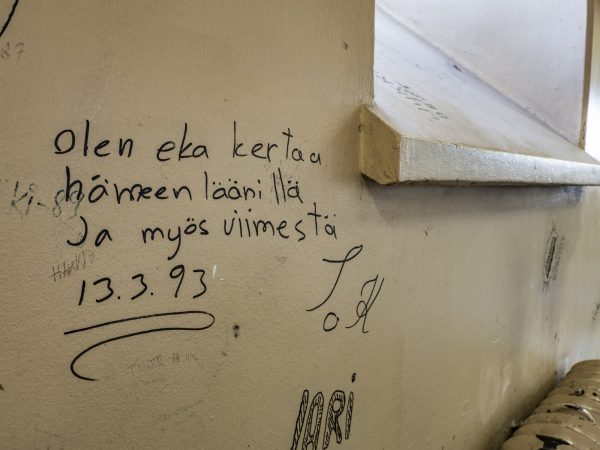 87
Olen eka kertaa
hämeen läänillä
Ja myös viimestä
13.3.93
J
o K
JARI